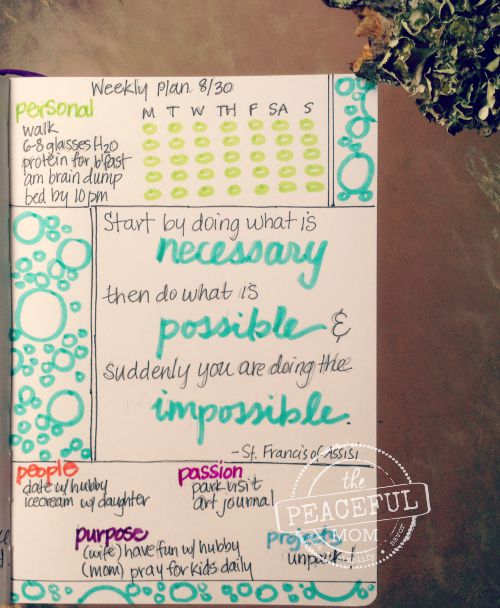 Weekly plan 8/30
personal
M T W TH F SA S
walk
6-8 glasses H2O
protein for b'fast
am brain dump
bed by 10 pm
Start by doing what is
necessary
then do what is
possible &
suddenly you are doing the
impossible.
-St. Francis of Assisi
people
date w/ hubby
icecream w/ daughter
passion
park visit
art journal
purpose
(wife) have fun w/ hubby
(mom) pray for kids daily
project
unpack!
the
PEACEFUL
MOM
savor